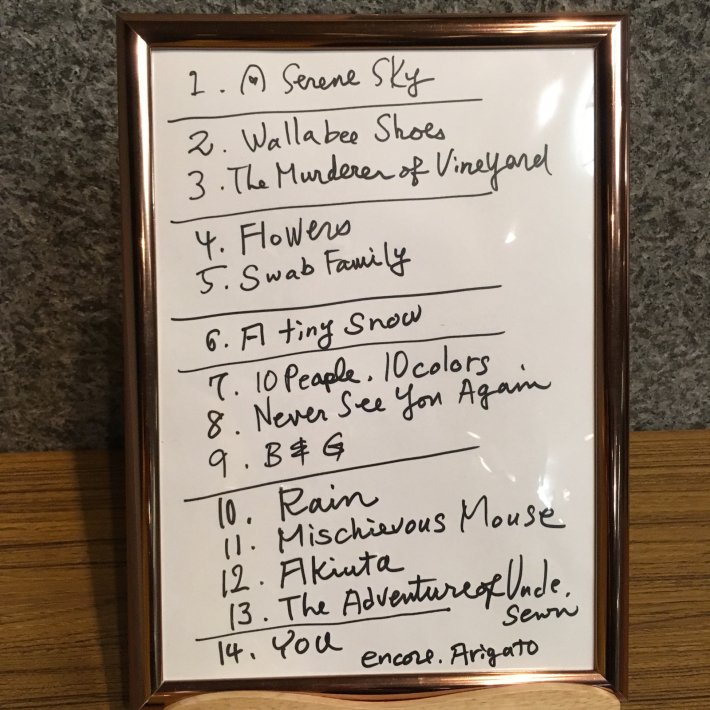 1. A Serene Sky
2. Wallabee Shoes
3. The Murderer of Vineyard
4. Flowers
5. Swab Family
6. A tiny Snow
7. 10 People. 10 colors
8. Never See You Again
9. B & G
10. Rain
11. Mischievous Mouse
12. Akiuta
13. The Adventure of
14. You
encore. Arigato